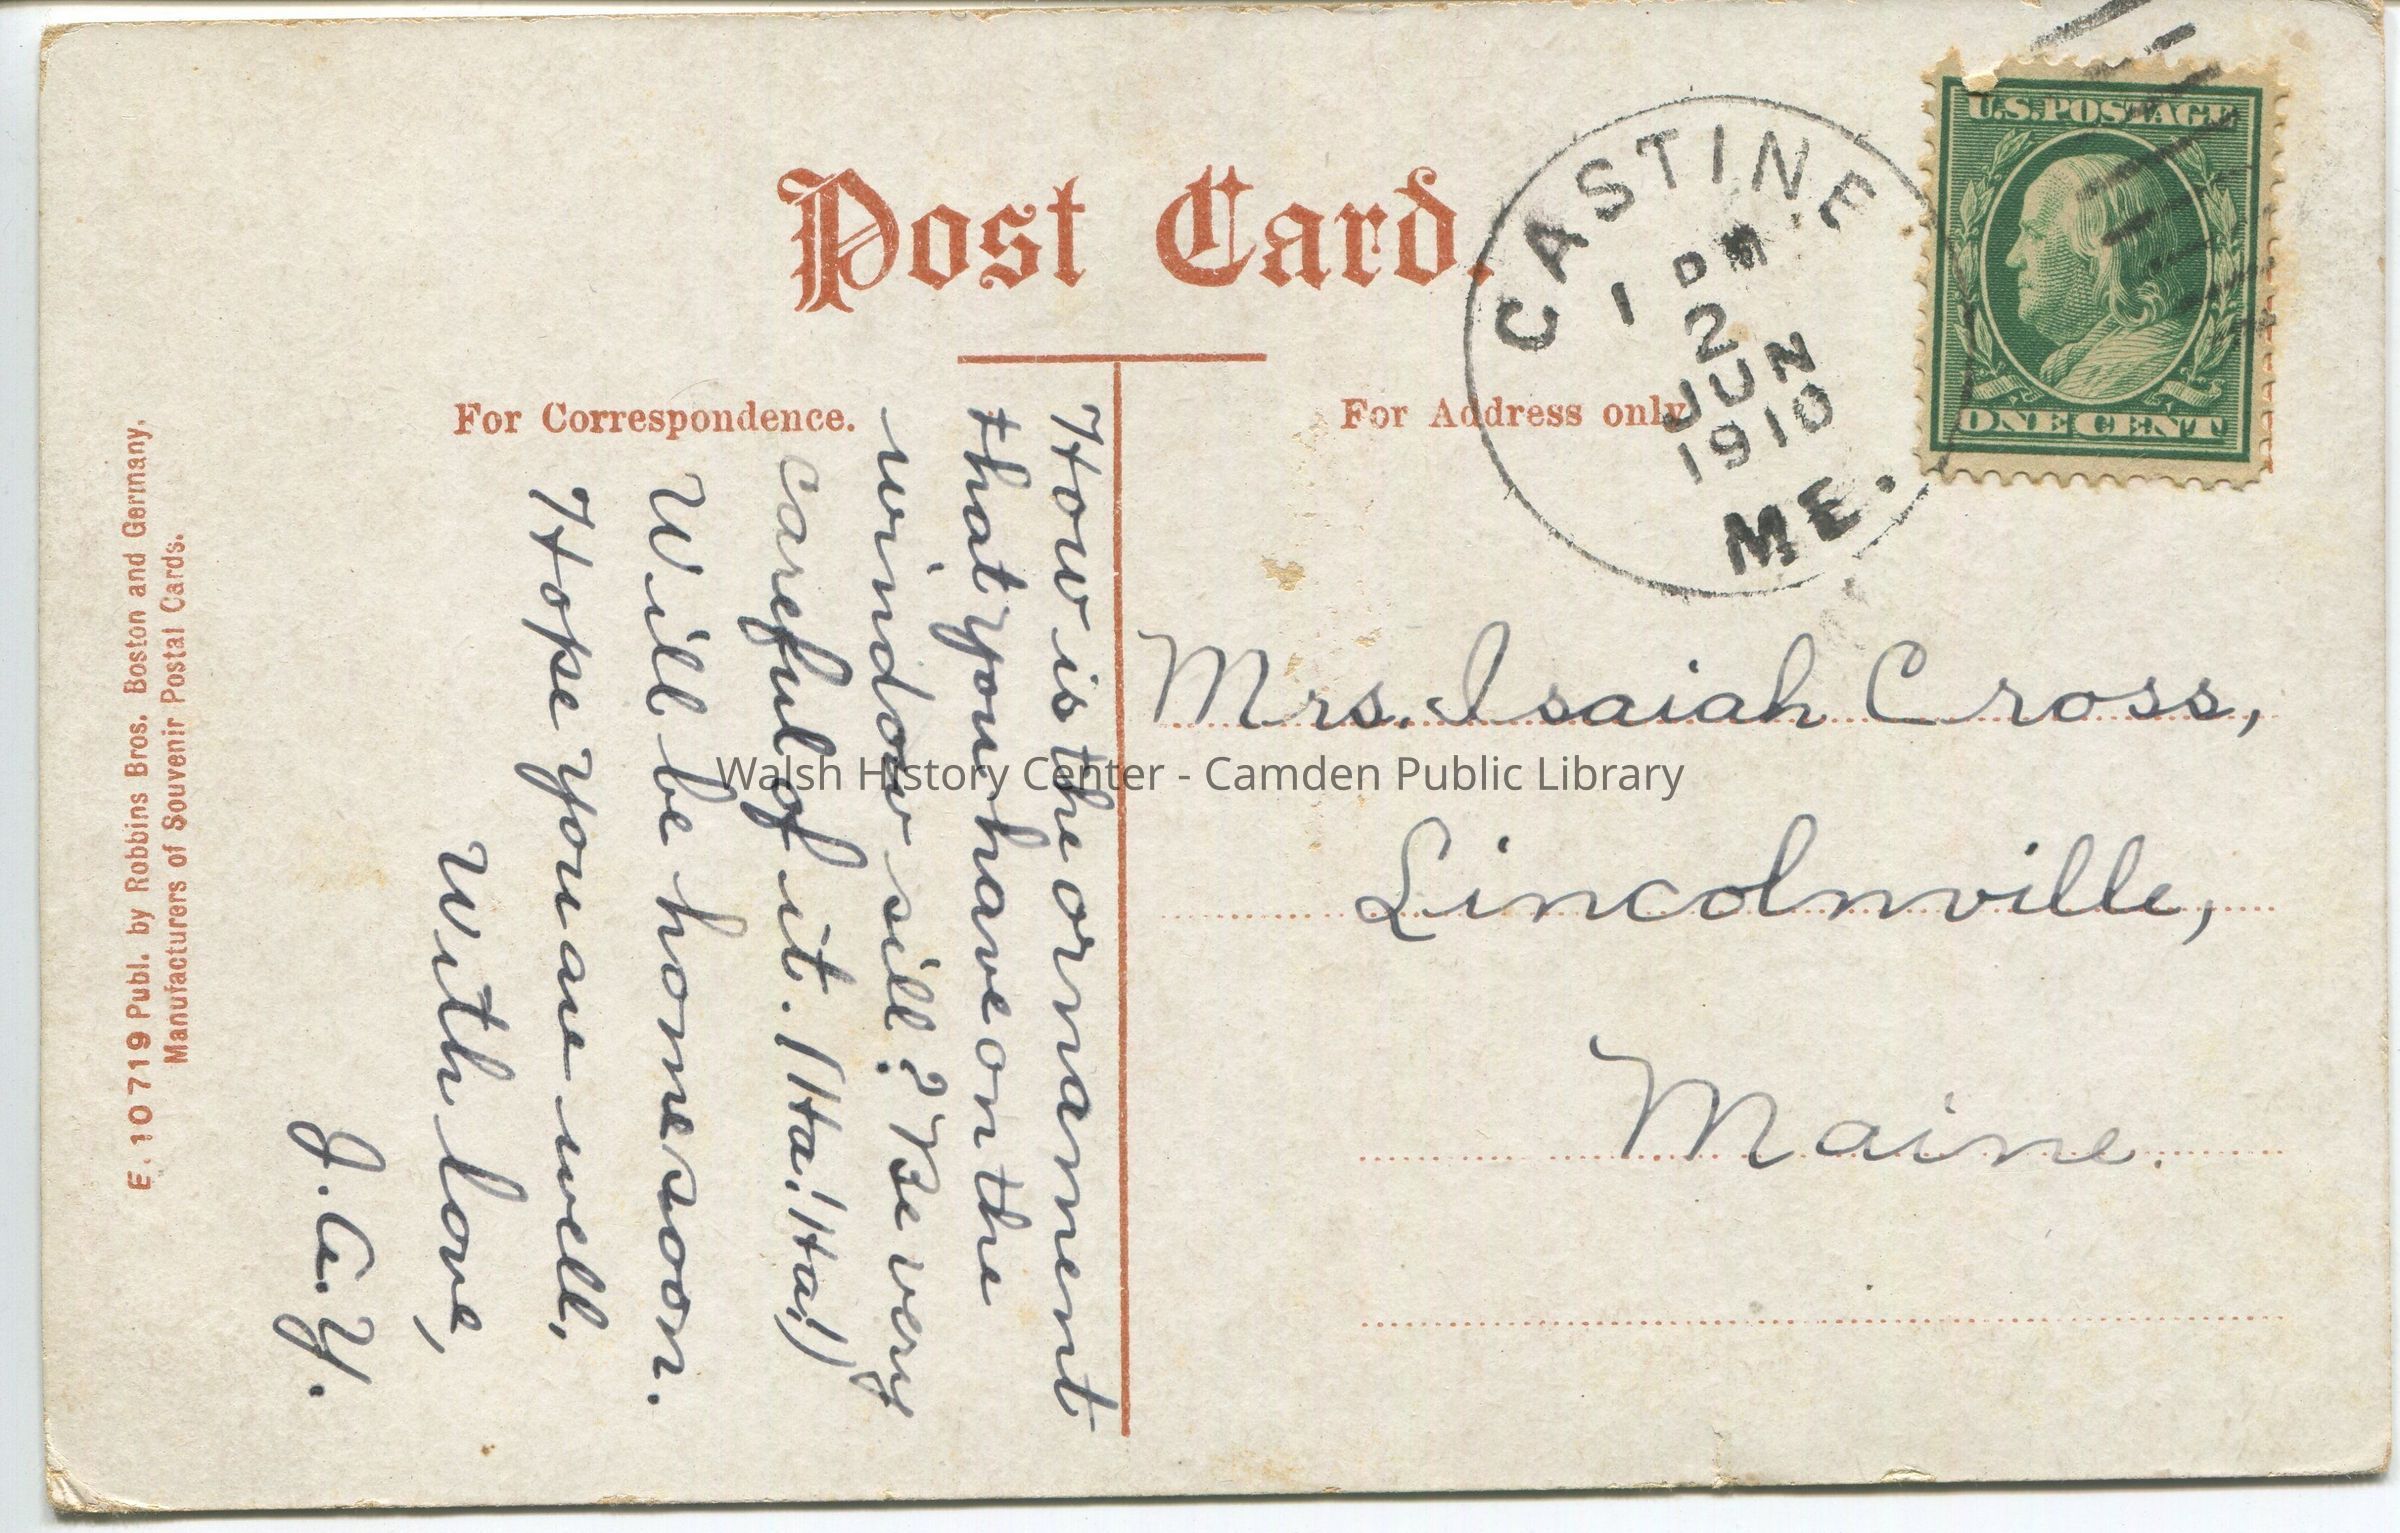 Post Card.
For Correspondence.
For Address only
CASTINE
1 PM
2
JUN
1910
ME.
U.S. POSTAGE
ONE CENT
How is the ornament
that you have on the
window sill? Be very
careful of it. (Ha! Ha!)
Will be home soon.
Hope you are well,
With love,
J. A. Y.
Mrs. Isaiah Cross,
Lincolnville,
Maine.
E. 10719 Publ. by Robbins Bros. Boston and Germany.
Manufacturers of Souvenir Postal Cards.
Walsh History Center - Camden Public Library